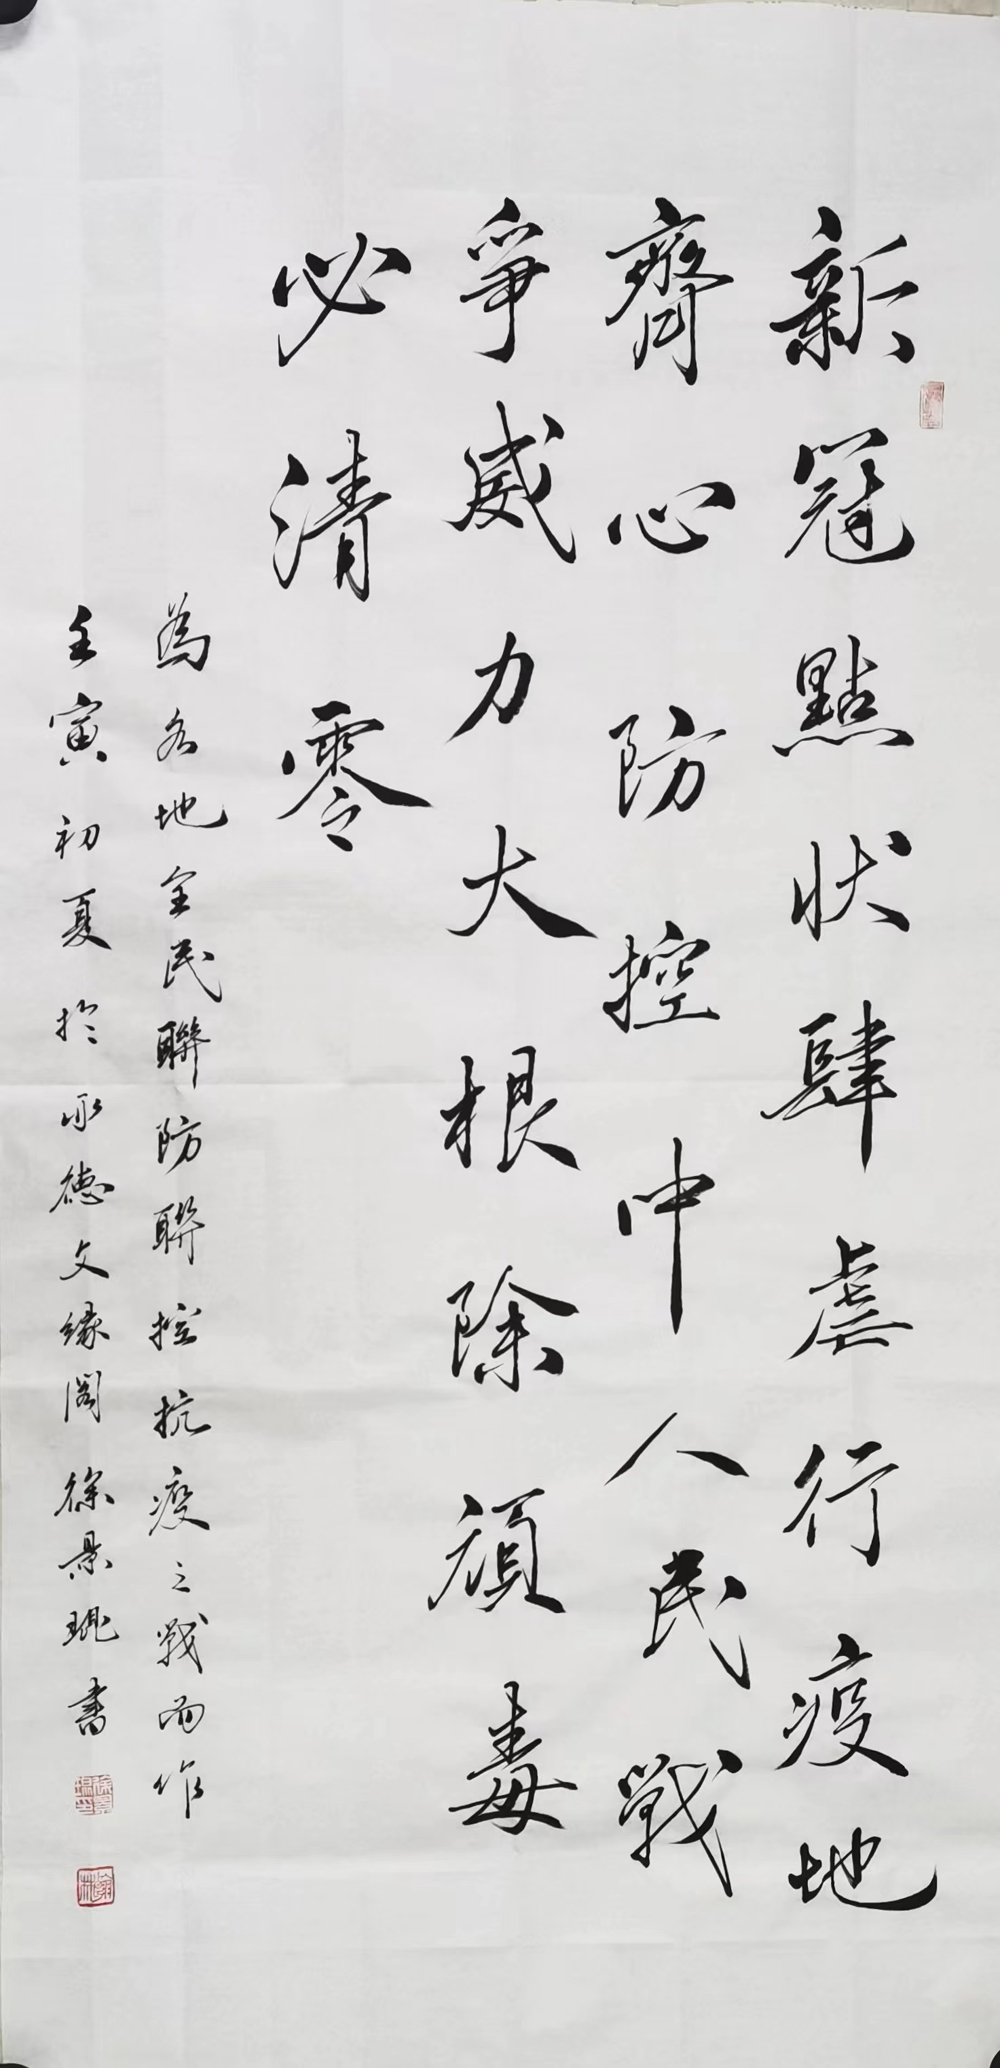 新冠點狀肆虐行疫地
齊心防控中人民戰
爭威力大根除頑毒
必清零
為各地全民聯防聯控抗疫之戰而作
壬寅初夏於承德文緣阁徐景琨書